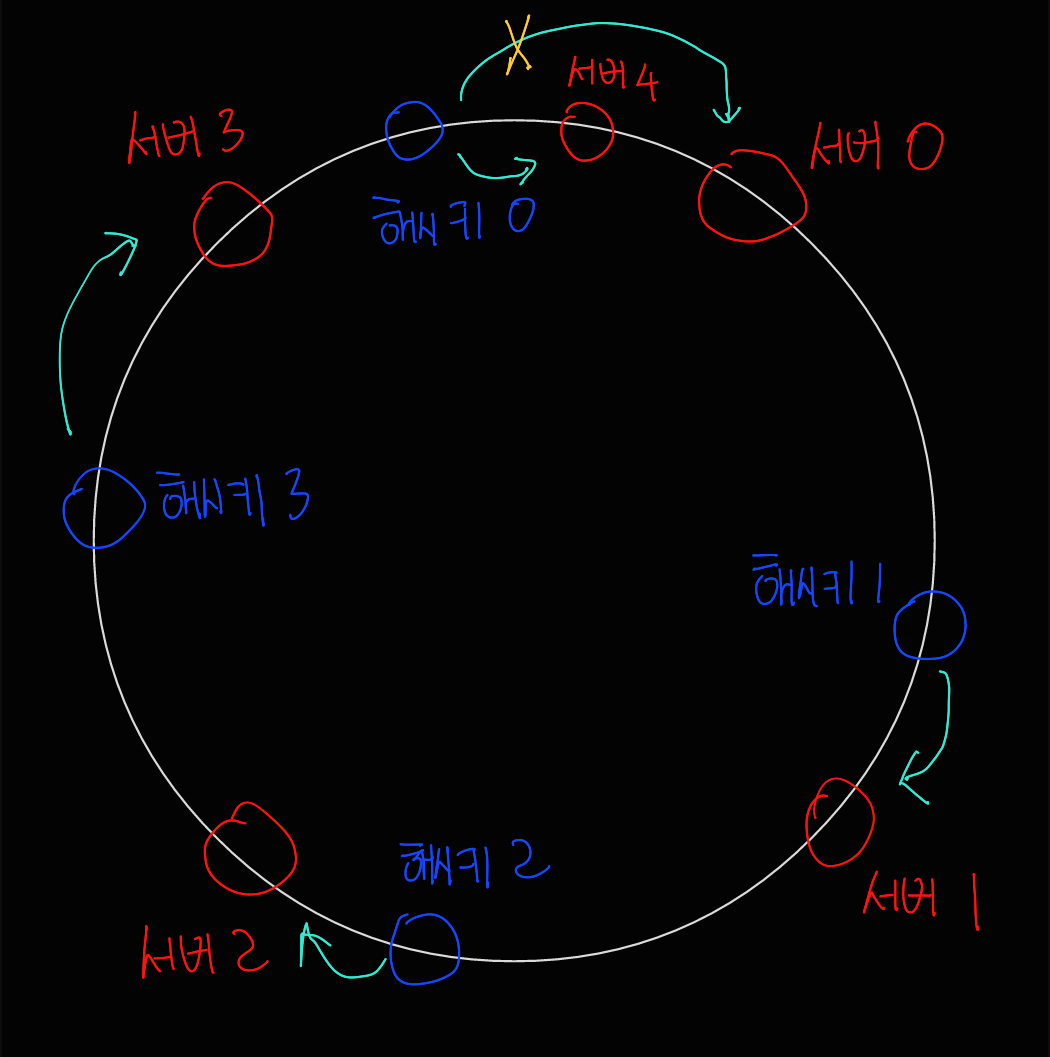 서버 4
서버 3
서버 0
해시키 0
해시키 3
해시키 1
해시키 2
서버 1
서버 2